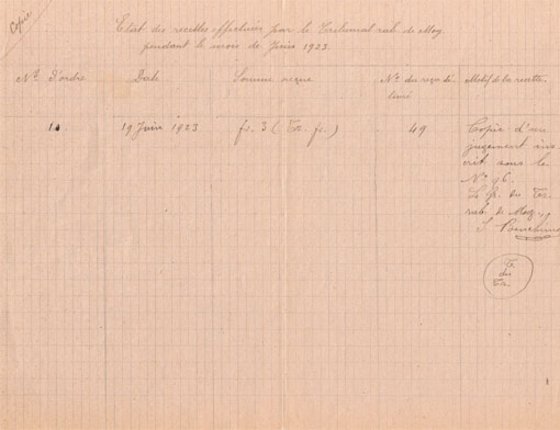 Copie
Etat des recettes effectuées par le Tribunal rab. de Mog.
pendant le mois de Juin 1923.
Nº d'ordre Date Somme reçue Nº du reçu dé- Motif de la recette.
livré
19 Juin 1923 fr. 3 (Tr. fr.) 49 Copie d'un
jugement ins
crit sous le
Nº 96.
Le Gr. du Tr.
rab. de Mog.,
T.
du
Tr.